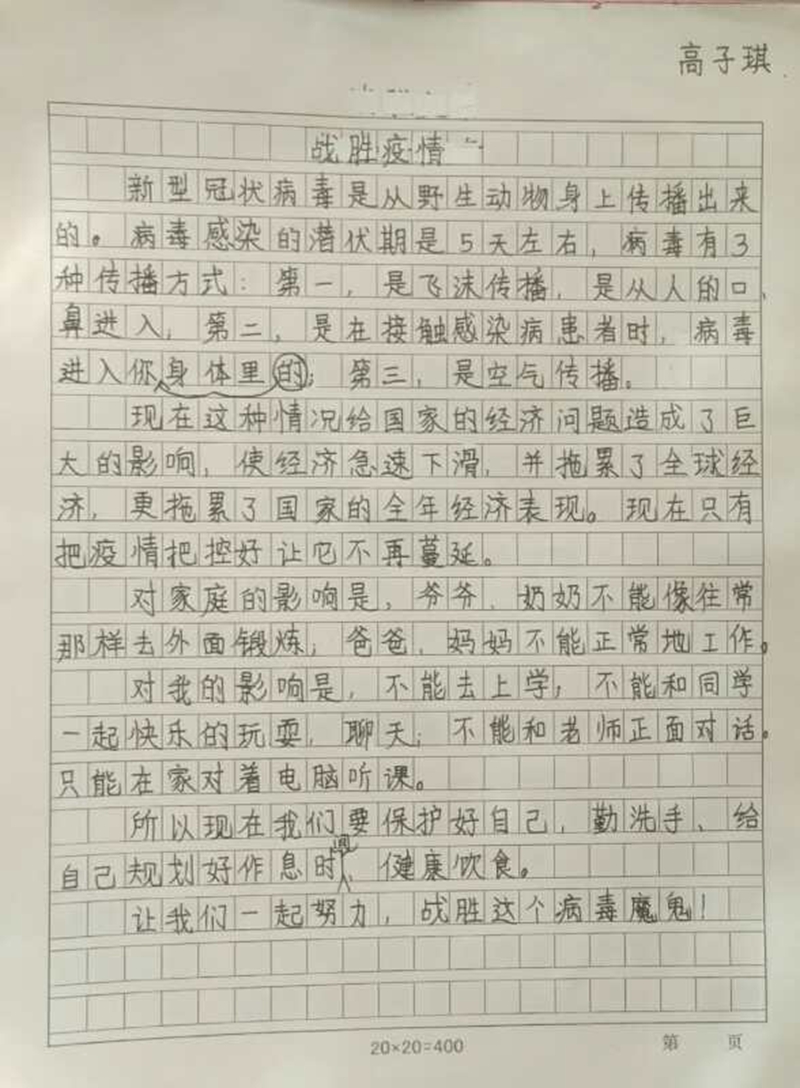 高子琪
战胜疫情
新型冠状病毒是从野生动物身上传播出来
的。病毒感染的潜伏期是5天左右，病毒有3
种传播方式：第一，是飞沫传播，是从人的口、
鼻进入；第二，是在接触感染病患者时，病毒
进入你身体里的；第三，是空气传播。
现在这种情况给国家的经济问题造成了巨
大的影响，使经济急速下滑，并拖累了全球经
济，更拖累了国家的全年经济表现。现在只有
把疫情把控好让它不再蔓延。
对家庭的影响是，爷爷、奶奶不能像往常
那样去外面锻炼，爸爸、妈妈不能正常地工作。
对我的影响是，不能去上学，不能和同学
一起快乐的玩耍，聊天；不能和老师正面对话。
只能在家对着电脑听课。
所以现在我们要保护好自己，勤洗手、给
自己规划好作息时间、健康饮食。
让我们一起努力，战胜这个病毒魔鬼！
20×20=400
第 页